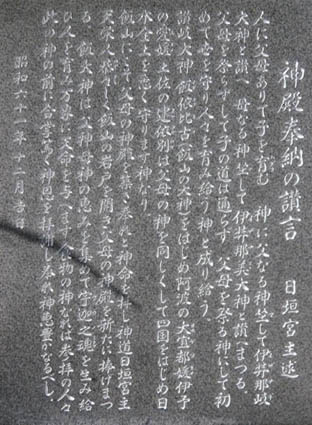 神殿奉納の讃言　日垣宮主述
人に父母ありて子を育む　神に父なる神坐して伊井那岐
大神と讃へ　母なる神坐して伊井那美大神と讃へまつる。
父母を祭らずして子の道は通らず　父母を祭る神にして初
めて世を守り人々を育み給う神と成り給う。
讃岐大神　飯依比古（飯山の大神）をはじめ阿波の大宜都媛　伊予
の愛媛　土佐の建依別は父母の神を同じくして四国をはじめ日
本全土を悉く守ります神なり。
飯山にして父母の神殿を築き奉れと神命を拝し　神道日垣宮主
天栄人格々しく飯山の岩戸を開き　父母の神殿を新たに捧げまつ
る　飯大神は　父神母神の恵みを集めて宇迦之魂と生み給
ひ人を育み万象に天命を与へます食物の神なれば　参拝の人々
此の神の前に合掌し篤く神恩を拝謝し奉れ　神恩豊かなるべし。
昭和六十一年十二月吉日